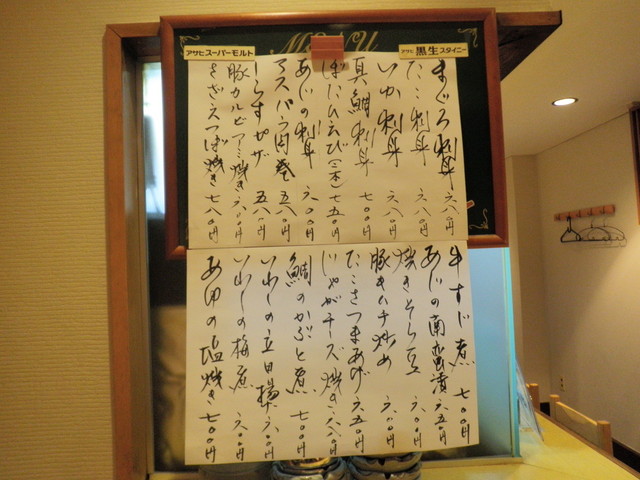 MENU
アサヒスーパーモルト
アサヒ 黒生 スタイニー
まぐろ刺身 六八〇円
たこ刺身 六八〇円
いか刺身 六八〇円
真鯛刺身 七〇〇円
ぼたんえび(二本) 七五〇円
あじの刺身 六〇〇円
アスパラ肉巻 五八〇円
しらすピザ 五八〇円
豚カルビアミ焼き 六〇〇円
さざえつぼ焼き 七八〇円
牛すじ煮 七〇〇円
あじの南蛮漬 六五〇円
焼きそら豆 六〇〇円
豚キムチ炒め 六〇〇円
たこさつまあげ 六五〇円
じゃがチーズ焼き 六八〇円
鯛のかぶと煮 七〇〇円
いわしの立田揚 六〇〇円
いわしの梅煮 六〇〇円
あゆの塩焼き 七〇〇円